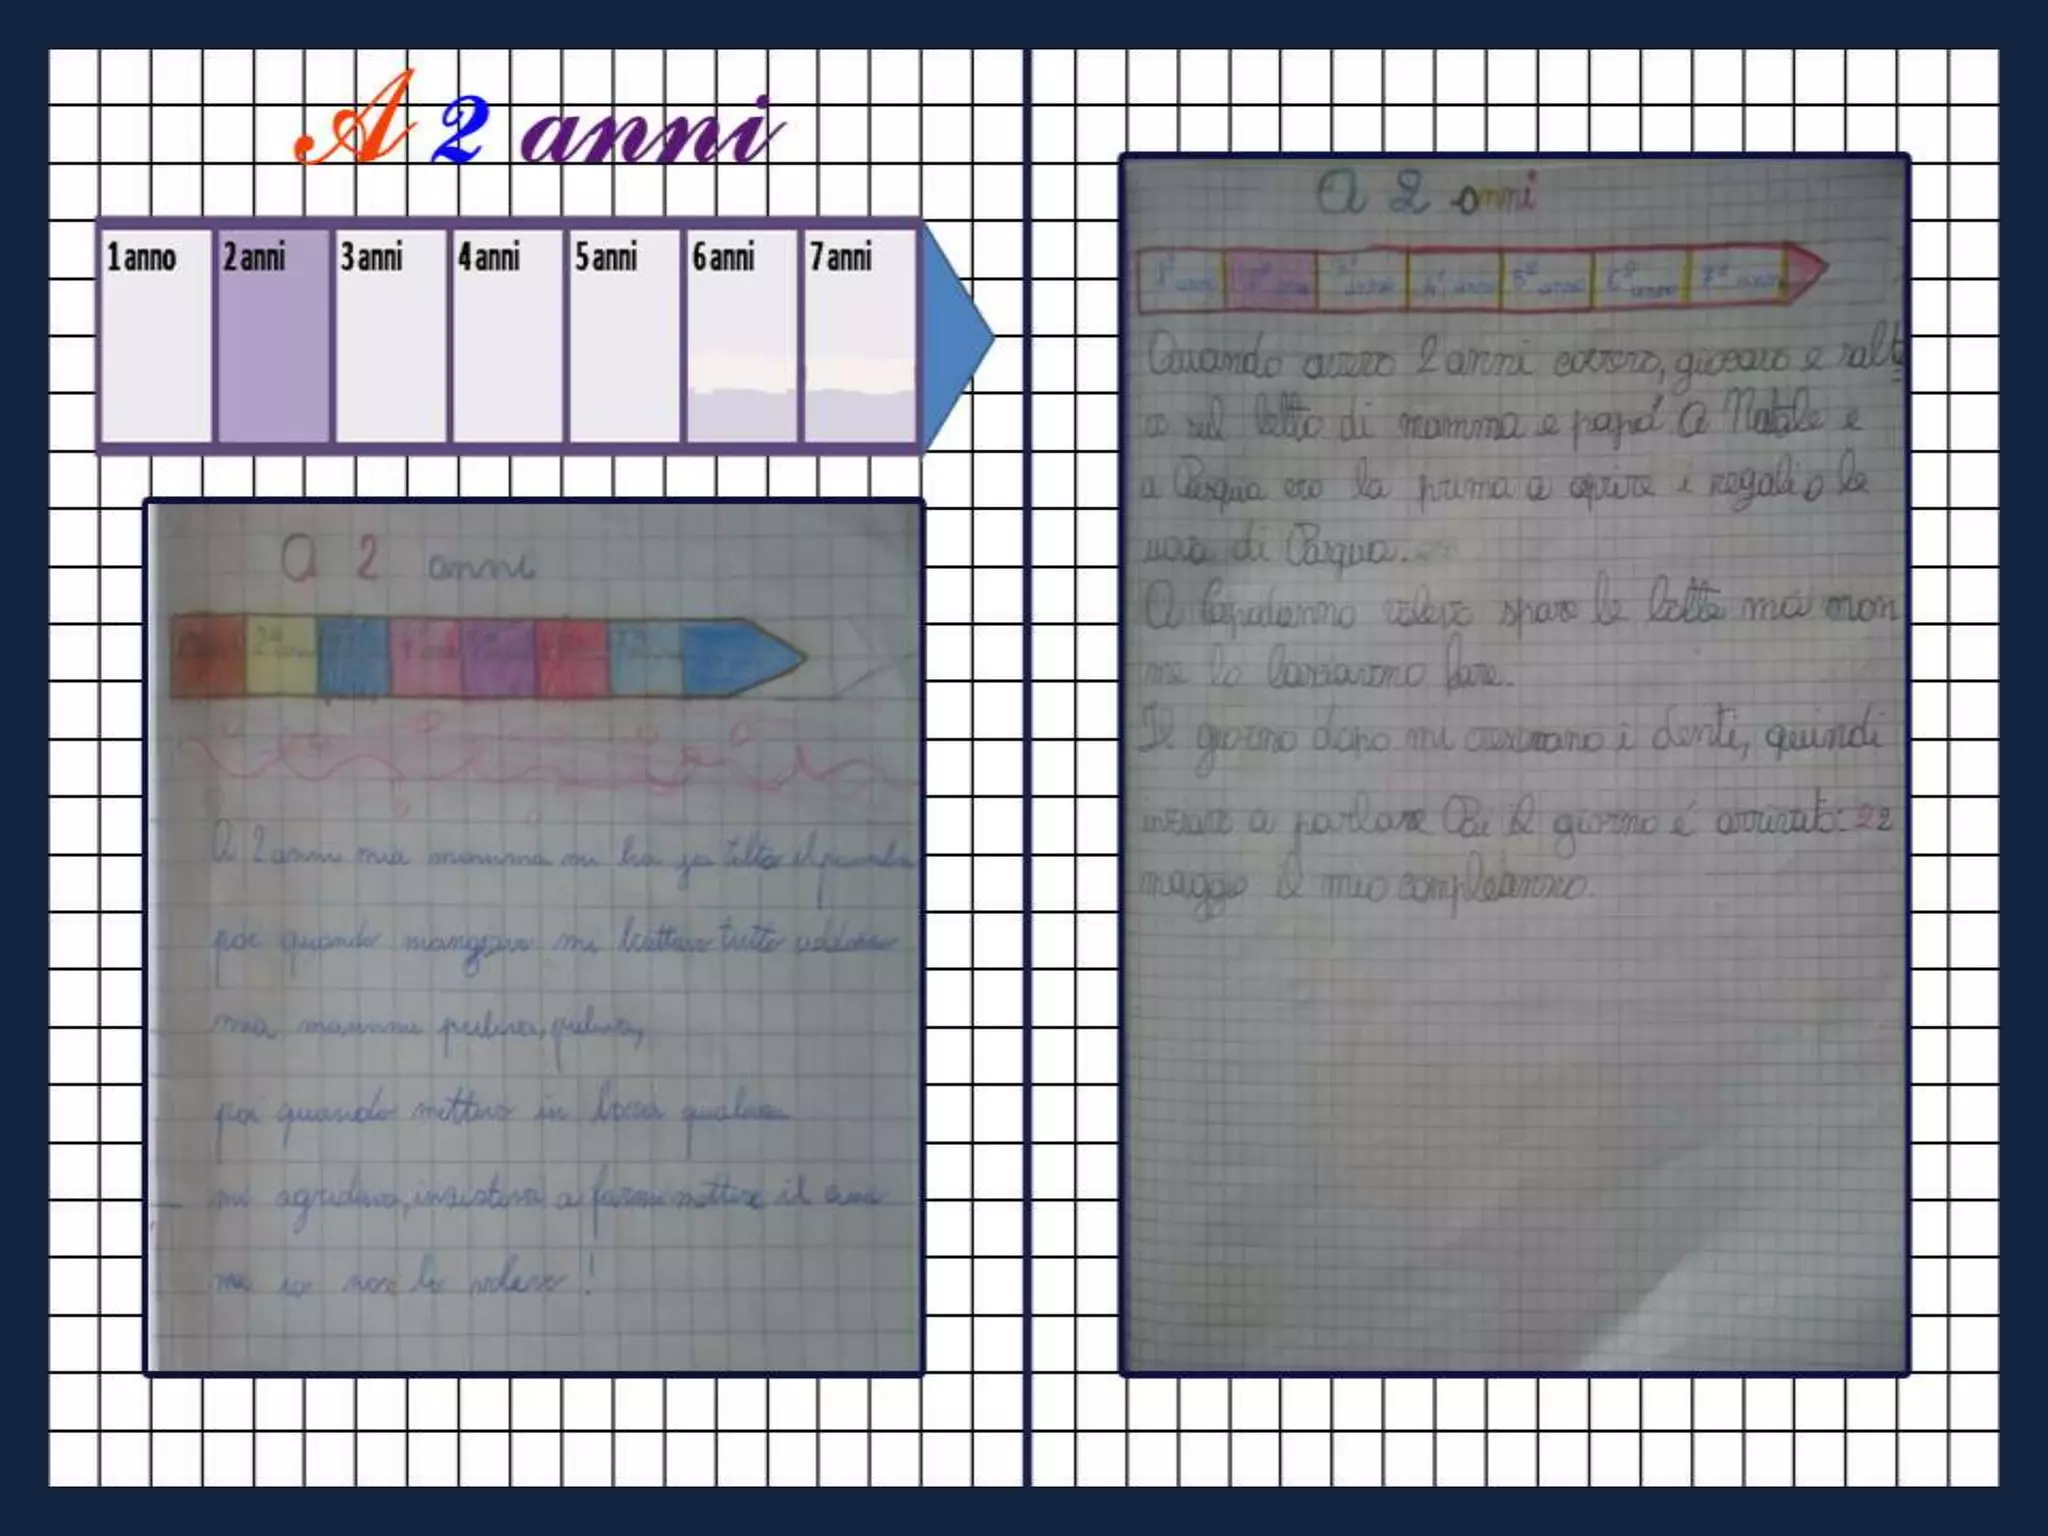 A 2 anni
1 anno 2 anni 3 anni 4 anni 5 anni 6 anni 7 anni
A 2 anni
A 2 anni mia mamma mi ha
poi quando mangiavo mi buttavo tutto addosso
mia mamma puliva, puliva,
poi quando mettevo in bocca qualcosa
mi sgridava, insisteva a farmi mettere il
ma io non lo volevo!
A 2 anni
1° anno 2° anno 3° anno 4° anno 5° anno 6° anno 7° anno
Quando avevo 2 anni correvo, giocavo e salta
o sul letto di mamma e papá. A Natale e
a Pasqua ero la prima a aprire i regali o le
uova di Pasqua.
A Capodanno volevo sparare le botte ma non
me lo lasciarono fare.
Il giorno dopo mi crescevano i denti, quindi
iniziai a parlare Poi il giorno é arrivato: 22
maggio il mio compleanno.